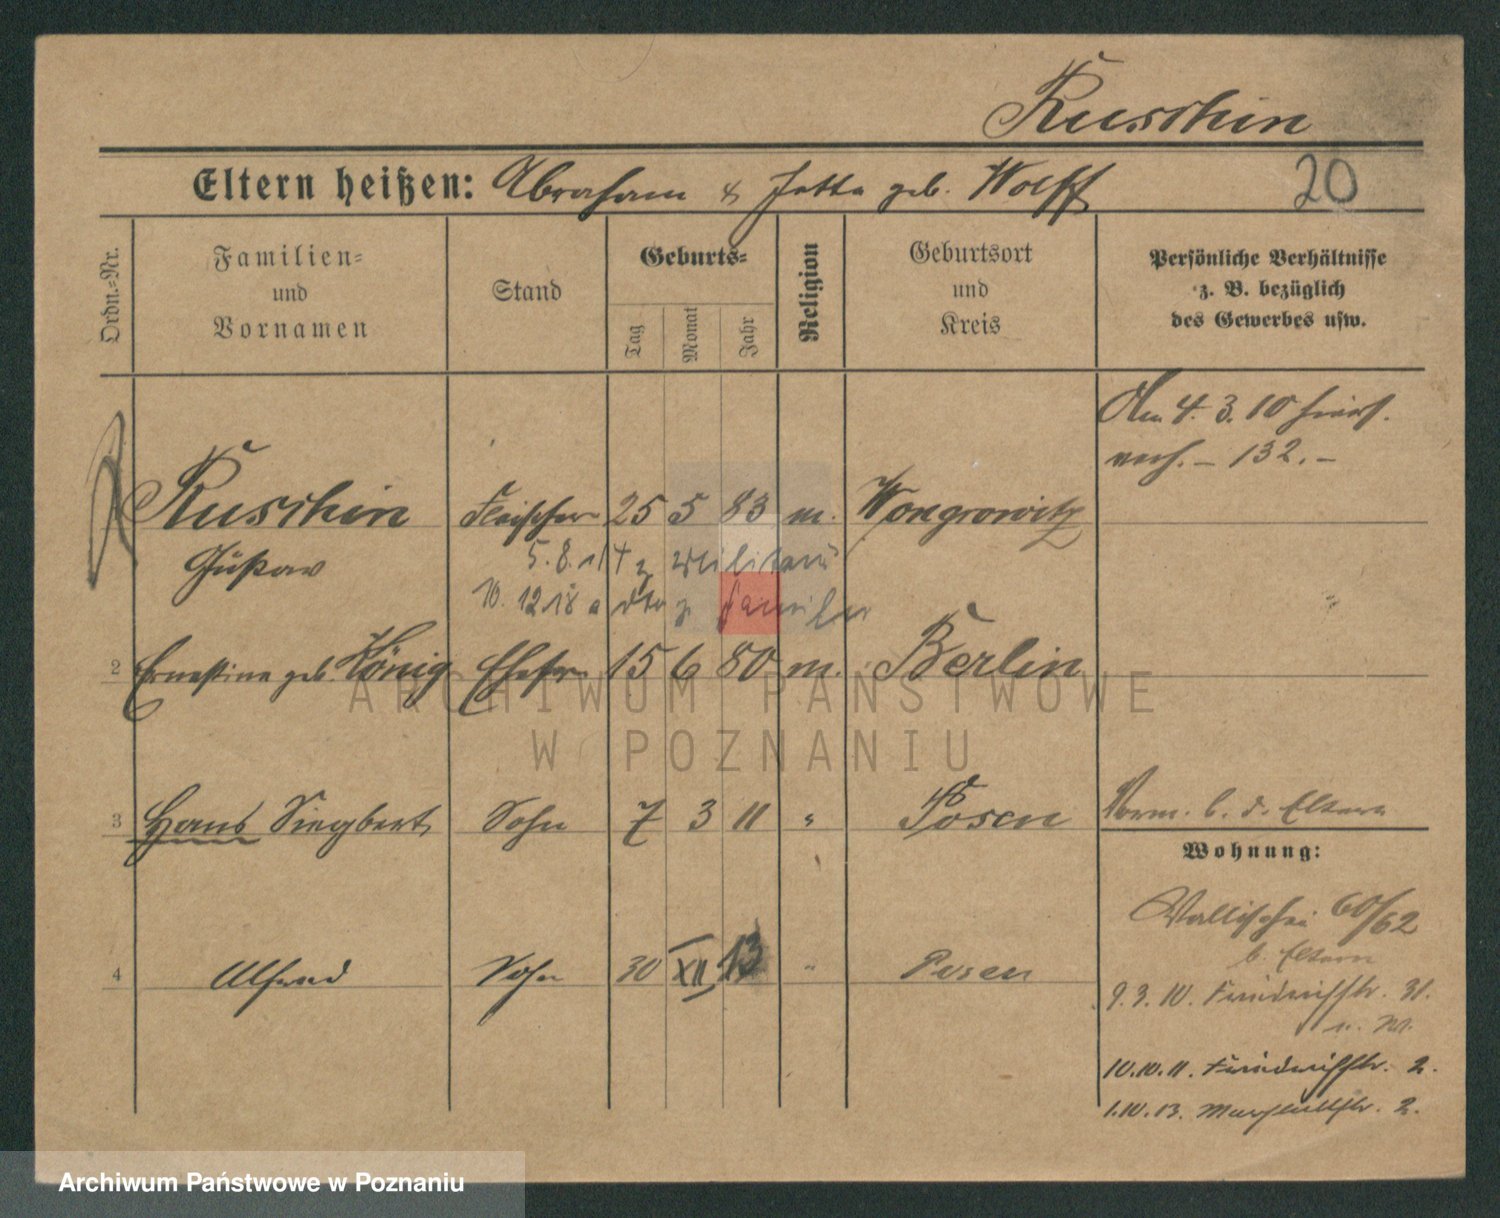 Ruschin
Eltern heißen: Abraham & Jette geb. Wolff
20
Ordn.=Nr.
Familien=
und
Vornamen
Stand
Geburts=
Tag
Monat
Jahr
Religion
Geburtsort
und
Kreis
Persönliche Verhältnisse
z. B. bezüglich
des Gewerbes usw.
Am 4. 3. 10 hiers.
verh. – 132. –
Ruschin Fleischer 25 5 83 m. Wongrowitz
Gustav
5. 8. 14 z Militär
10. 12 18 a dto z Familie
2 Ernestine geb. König Ehefr. 15 6 80 m. Berlin
ARCHIWUM PAŃSTWOWE
W POZNANIU
3 Hans Siegbert Sohn 7 3 11 " Posen
Vorm. b. d. Eltern
Wohnung:
Wallischei 60/62
b. Eltern
4 Alfred Sohn 30 XII 13 " Posen
9. 3. 10. Friedrichstr. 31.
10.10.11. Friedrichstr. 2.
1.10.13. Margaretenstr. 2.
Archiwum Państwowe w Poznaniu